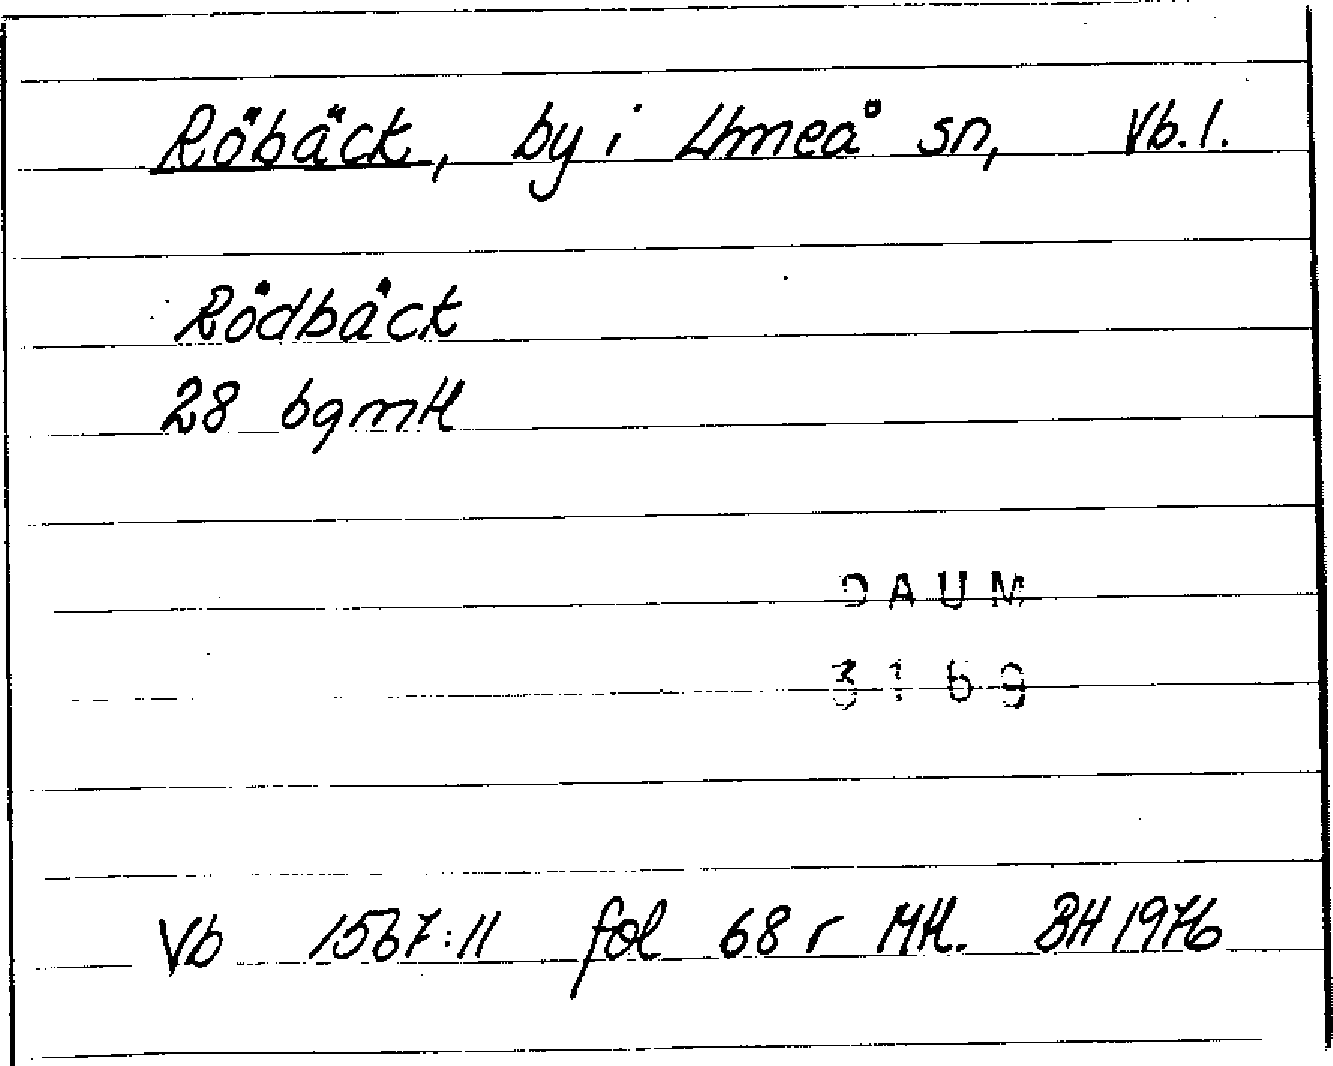 Röbäck, by i Umeå sn, Vb.l.
Rödbäck
28 bgmtl
DAUM
3169
Vb 1567:11 fol 68 r Mtl. BH 1976